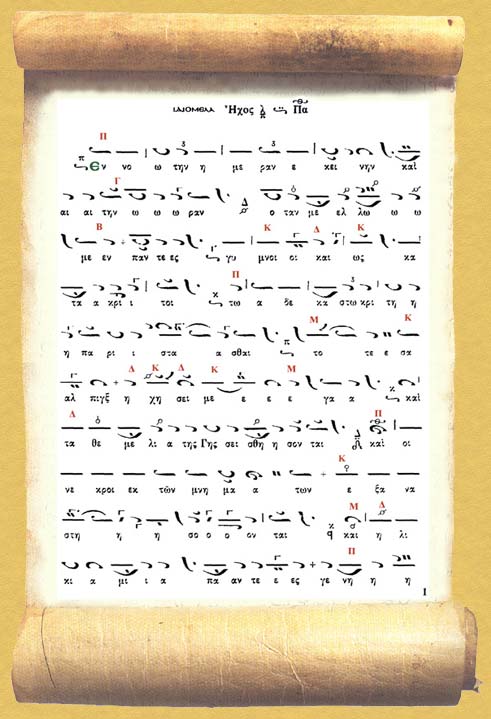 ΙΔΙΟΜΕΛΑ Ἦχος Πα
Π
Εν νο ω την η με ραν ε κει νην και
Γ
αι αι την ω ω ω ραν Δ ο ταν με ελ λω ω ω
Β Κ Δ Κ
με εν παν τε ες Γ γυ μνοι οι και ως κα
Π
τα α κρι ι τοι κ τω α δε κα στω κρι τη η
Μ Κ
η πα ρι ι στα α σθαι π το τε ε σα
Δ Κ Δ Κ Μ
αλ πιγξ η χη σει με ε ε ε γα α κ και
Δ Π
τα θε με λι α της Γης σει σθη η σον ται και οι
Κ
νε κροι εκ τῶν μνη μα α των ε ξα να
Μ Δ
στη η η σο ο ο ον ται κ q και η λι
Π
κι α μι ι α πα αν τε ε ες γε νη η η
1